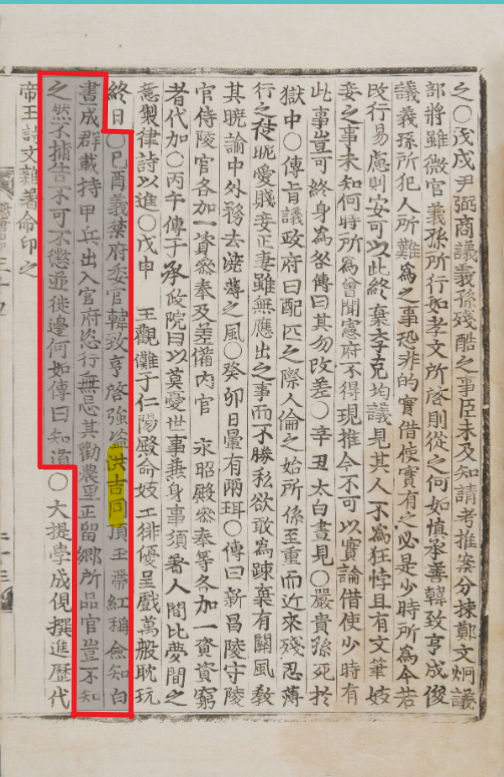 之○戊戌尹弼商議義孫殘酷之事臣未及知請考推案分揀鄭文炯議
部將雖微官義孫所行如孝文所啓則從之何如愼承善韓致亨成俊
議義孫所犯人所難爲之事恐非的實借使實有之必是少時所爲今若
改行易慮則安可以此終棄李克均議見其人不爲狂悖且有文筆妓
妾之事未知何時所爲曾聞憲府不得現推今不可以實論借使少時有
此事豈可終身爲咎傳曰其勿改差○辛丑太白晝見○嚴貴孫死於
獄中○傳旨議政府曰配匹之際人倫之始所係至重而近來殘忍薄
行之徒昵愛賤妾正妻雖無應出之事而不勝私欲敢爲疎棄有關風敎
其曉諭中外務去澆薄之風○癸卯日暈有兩珥○傳曰新昌陵守陵
官侍陵官各加一資參奉及差備內官 永昭殿參奉等各加一資資窮
者代加○丙午傳于承政院曰以莫憂世事兼身事須著人間比夢間之
意製律詩以進○戊申 王觀儺于仁陽殿命妓工徘優呈戲萬般耽玩
終日○己酉義禁府委官韓致亨啓強盜洪吉同頂玉帶紅稱僉知白
晝成群載持甲兵出入官府恣行無忌其勸農里正留鄕所品官豈不知
之然不捕告不可不懲並徙邊何如傳曰知道○大提學成俔撰進歷代
帝王詩文雜著命印之